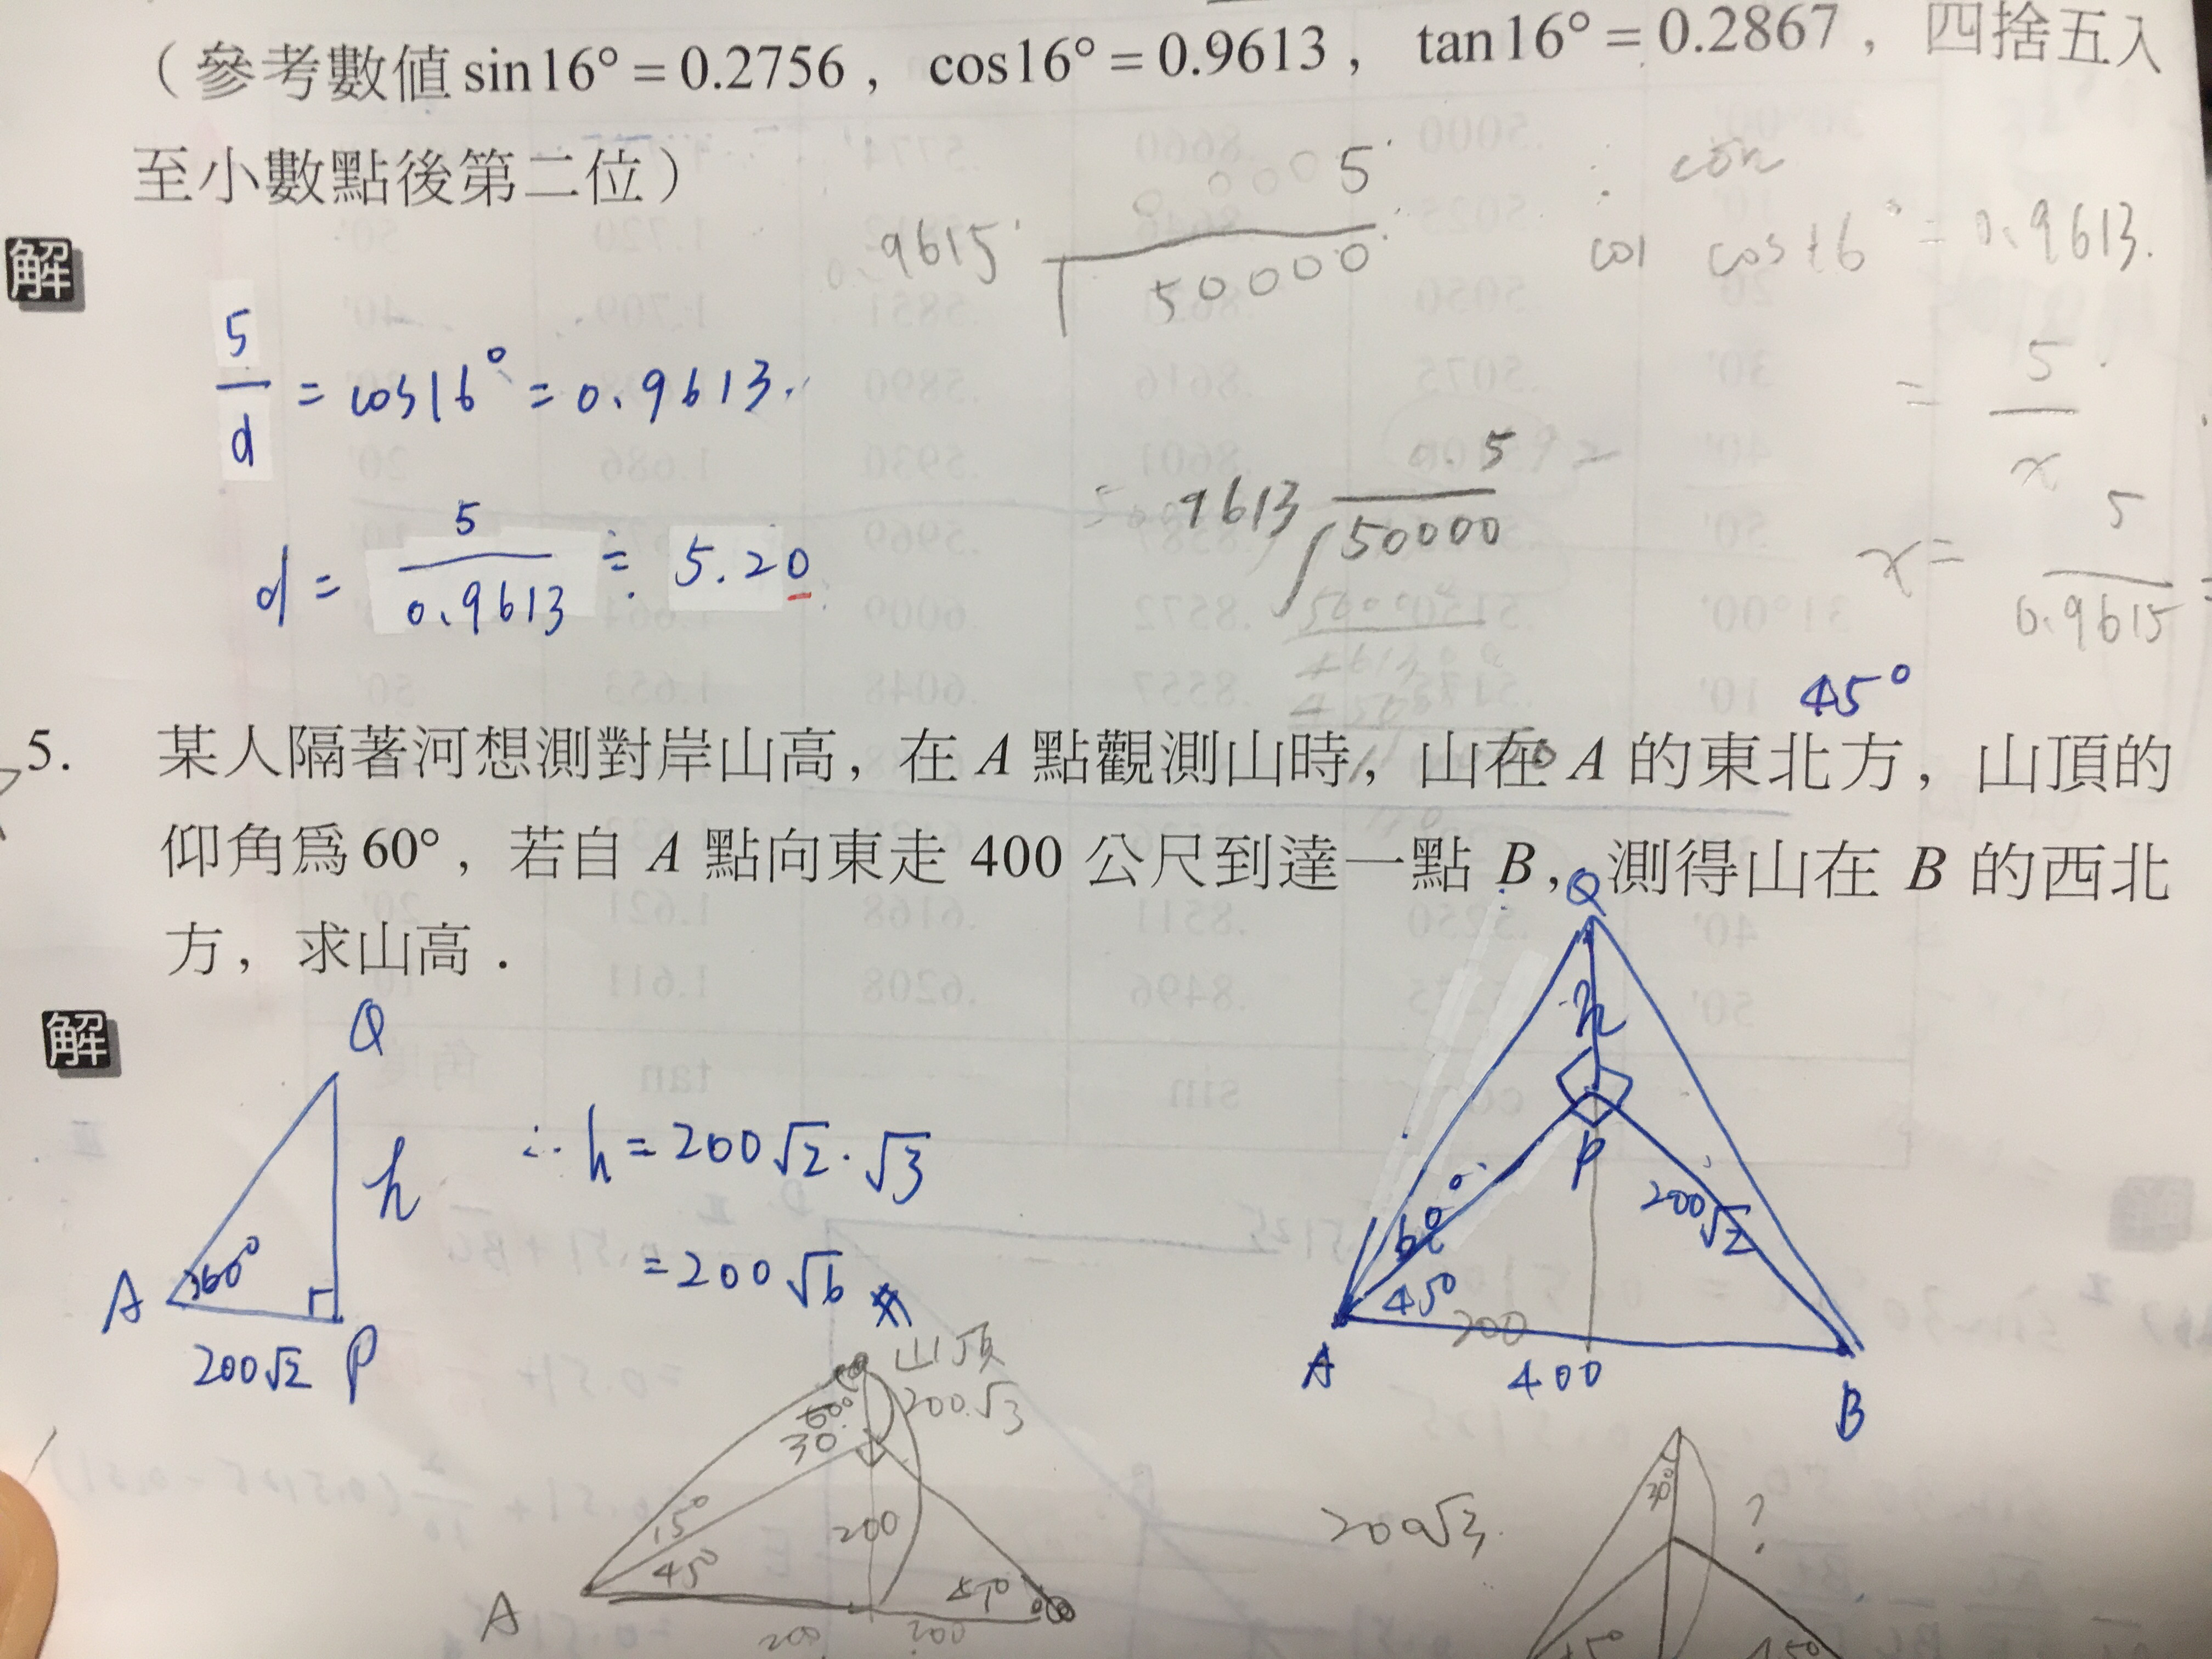 （參考數值 sin16° = 0.2756， cos16° = 0.9613， tan16° = 0.2867，四捨五入
至小數點後第二位）
5
9615 50000
con
cos16° = 0.9613.
= 5/x
x = 5/0.9615 =
解
5/d = cos16° = 0.9613
d = 5/0.9613 ≒ 5.20
0.5
9613 50000
45°
5. 某人隔著河想測對岸山高，在 A 點觀測山時，山在 A 的東北方，山頂的
仰角為 60°，若自 A 點向東走 400 公尺到達一點 B，測得山在 B 的西北
方，求山高．
解
Q
h
A 60°
200√2 P
∴ h = 200√2·√3
= 200√6
Q
h
P
200√2
60°
45°
200
A 400 B
山頂
200√3
60°
30°
15°
45°
200
45°
A
200 200
200√3.
30°
?
45° 45°